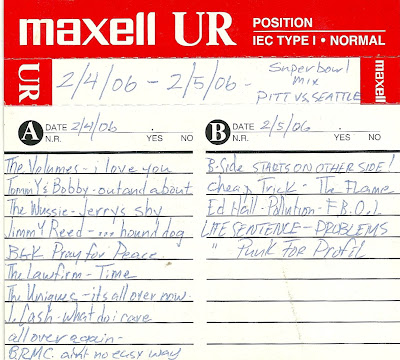 maxell UR POSITION
IEC TYPE I • NORMAL
UR
2/4/06 - 2/5/06 - Superbowl
mix
PITT VS. SEATTLE
maxell
A DATE 2/4/06
N.R. YES NO
The Volumes - i love you
Tommy & Bobby - out and about
The Wussie - Jerrys shy
Jimmy Reed - ... hound dog
BLK Pray for Peace
The Lawfirm - Time
The Uniques - its all over now
J. Cash - what do i care
all over again -
B.R.M.C. aint no easy way
B DATE 2/5/06
N.R. YES NO
B-Side STARTS ON OTHER SIDE!
Cheap Trick - The Flame
Ed Hall - Pollution - F.B.O.I.
LIFE SENTENCE - PROBLEMS
" Punk For Profit